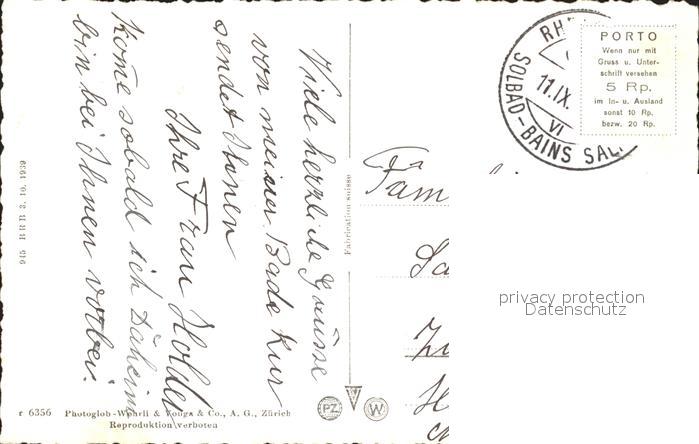 Viele herzliche Grüsse
von meiner Bade Kur
sendet Ihnen
Ihre Frau Holder
Kome sobald ich Daheim
bin bei Ihnen vorbei.
945 3. 10. 1939
Fabrication suisse
RH
11.IX.
VI
SOLBAD-BAINS SAL.
PORTO
Wenn nur mit
Gruss u. Unter-
schrift versehen
5 Rp.
im In- u. Ausland
sonst 10 Rp.
bezw. 20 Rp.
Fam
privacy protection
Datenschutz
r 6356 Photoglob-Wehrli & Vouga & Co., A. G., Zürich
Reproduktion verboten
PZ
W